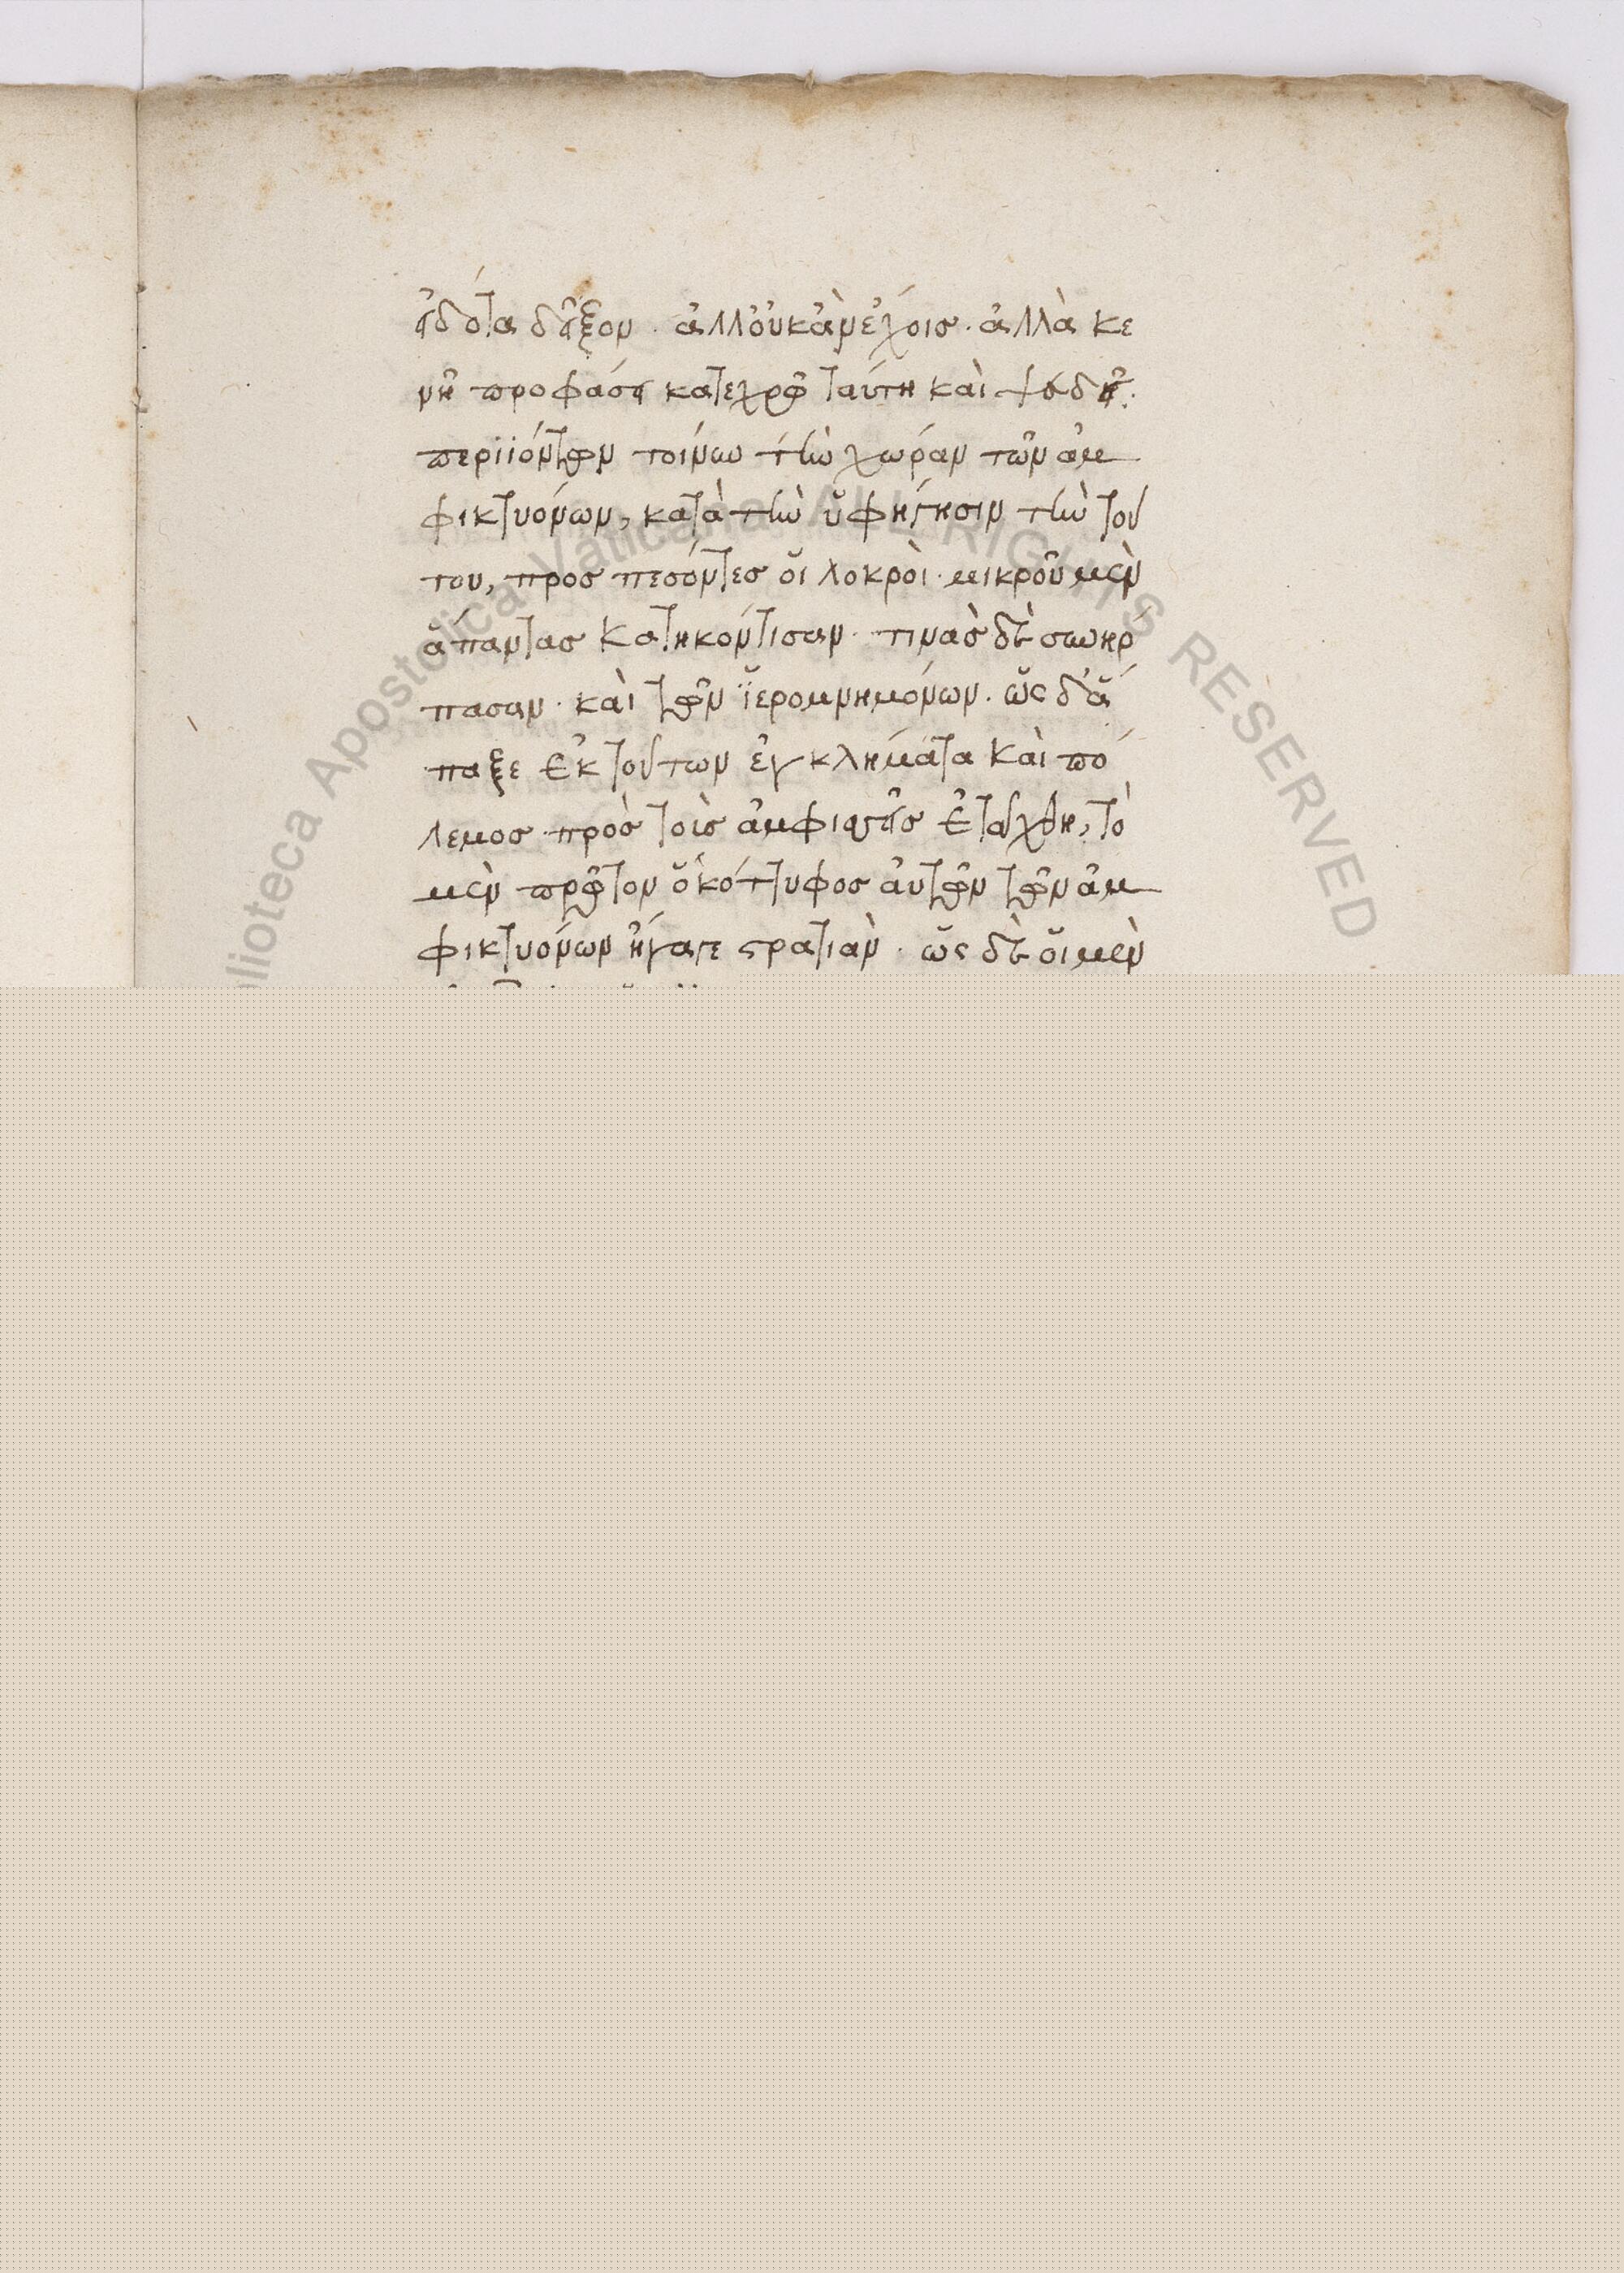 εἰδότα δεῖξον. ἀλλ' οὐκ ἂν ἔχοις. ἀλλὰ κε
νῆ προφάσει κατεχρῶ ταύτη καὶ ψευδεῖ:
περιϊόντων τοίνυν τὴν χώραν τῶν ἀμ
φικτυόνων, κατὰ τὴν ὑφήγησιν τὴν τού
του, προσπεσόντες οἱ λοκροὶ. μικροῦ μὲν
ἅπαντας κατηκόντισαν. τινὰς δὲ συνήρ
πασαν. καὶ τῶν ἱερομνημόνων. ὡς δ' ἅ
παξ ἐκ τούτων ἐγκλήματα καὶ πό
λεμος πρὸς τοὺς ἀμφισσεῖς ἐταράχθη, τὸ
μὲν πρῶτον ὁ κόττυφος αὐτῶν τῶν ἀμ
φικτυόνων ἤγαγε στρατιὰν. ὡς δὲ οἱ μὲν
Biblioteca Apostolica Vaticana ALL RIGHTS RESERVED